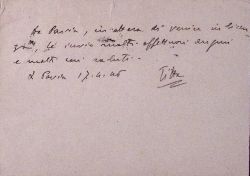 da Pavia, in attesa di venire in licen
za, Le invio molti affettuosi auguri
e molti cari saluti.
Pavia 17.4.46 Titta